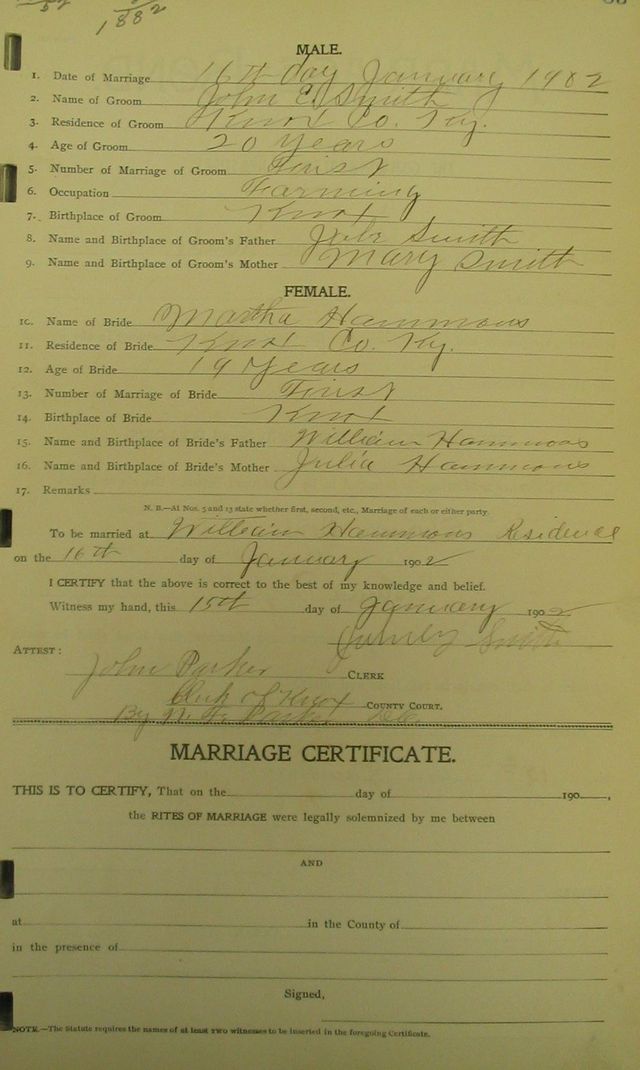 1882
MALE.
1. Date of Marriage 16th day January 1902
2. Name of Groom John E. Smith
3. Residence of Groom Knox Co. Ky.
4. Age of Groom 20 years
5. Number of Marriage of Groom First
6. Occupation Farming
7. Birthplace of Groom Knox
8. Name and Birthplace of Groom's Father Smith
9. Name and Birthplace of Groom's Mother Mary Smith
FEMALE.
10. Name of Bride Martha Hammons
11. Residence of Bride Knox Co. Ky.
12. Age of Bride 19 Years
13. Number of Marriage of Bride First
14. Birthplace of Bride Knox
15. Name and Birthplace of Bride's Father William Hammons
16. Name and Birthplace of Bride's Mother Julia Hammons
17. Remarks
N. B.—At Nos. 5 and 13 state whether first, second, etc., Marriage of each or either party.
To be married at William Hammons Residence
on the 16th day of January 1902
I CERTIFY that the above is correct to the best of my knowledge and belief.
Witness my hand, this 15th day of January 1902
Smith
ATTEST:
John Parker CLERK
Clerk of Knox COUNTY COURT.
By Parker DC
MARRIAGE CERTIFICATE.
THIS IS TO CERTIFY, That on the day of 190 ,
the RITES OF MARRIAGE were legally solemnized by me between
AND
at in the County of
in the presence of
Signed,
NOTE.—The Statute requires the names of at least two witnesses to be inserted in the foregoing Certificate.